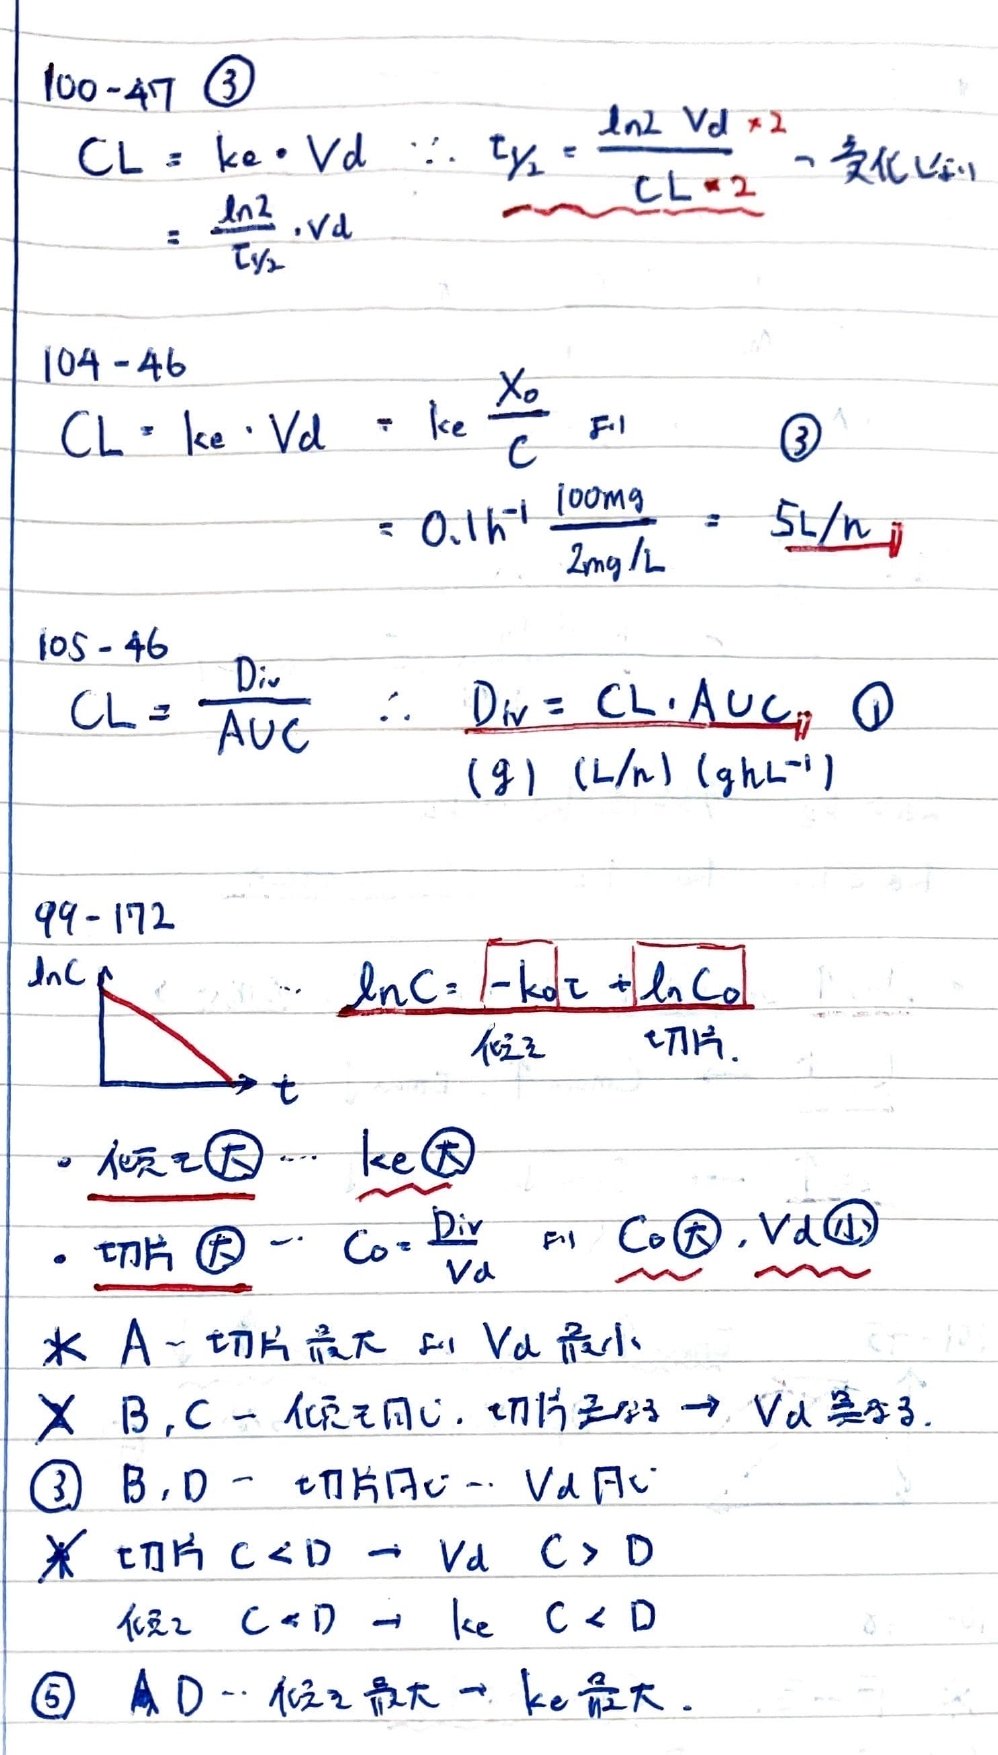 100-47 ③
CL = ke・Vd ∴ t½ = ln2 Vd ×2 / CL ×2 → 変化しない
= ln2 / t½ ・Vd
104-46
CL = ke・Vd = ke X₀ / C より ③
= 0.1h⁻¹ 100mg / 2mg/L = 5L/h
105-46
CL = Div / AUC ∴ Div = CL・AUC ①
(g) (L/h) (ghL⁻¹)
99-172
lnC t … lnC = -ke t + lnC₀
傾き 切片.
・傾き㊅ … ke㊅
・切片 ㊅ … C₀ = Div / Vd より C₀㊅, Vd㊉
× A - 切片最大 より Vd 最小
× B, C - 傾き同じ. 切片異なる → Vd 異なる.
③ B, D - 切片同じ … Vd 同じ
× 切片 C < D → Vd C > D
傾き C < D → ke C < D
⑤ D … 傾き最大 → ke 最大.